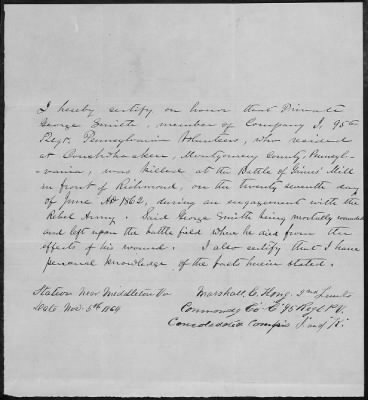 I hereby certify on honor that Private
George Smith, member of Company I, 95th
Regt. Pennsylvania Volunteers, who resided
at Conshohocken, Montgomery County, Pennsyl-
-vania, was killed at the Battle of Gaines' Mill
in front of Richmond, on the twenty seventh day
of June AD 1862, during an engagement with the
Rebel Army. Said George Smith being mortally wounded
and left upon the battle field where he died from the
effects of his wound. I also certify that I have
personal knowledge of the facts herein stated.
Station Near Middleton Va
Date Nov. 5th 1864
Marshall C. Hong, 2nd Lieut
Commandg Co "E" 95 Regt P.V.
Consolidated Comp's "I" and "K"